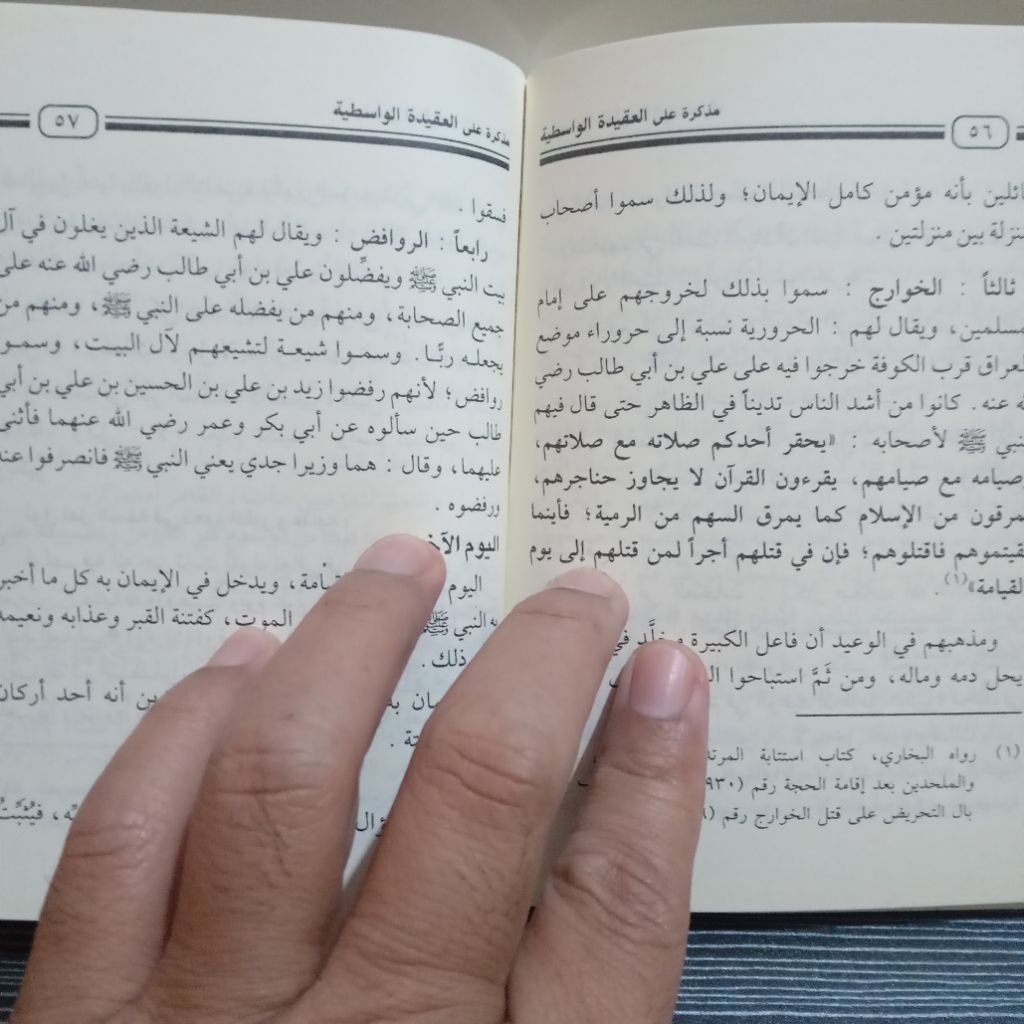 مذكرة على العقيدة الواسطية
٥٦
بأنه مؤمن كامل الإيمان؛ ولذلك سموا أصحاب
بين منزلتين .
ثالثاً : الخوارج : سموا بذلك لخروجهم على إمام
ويقال لهم : الحرورية نسبة إلى حروراء موضع
قرب الكوفة خرجوا فيه على علي بن أبي طالب رضي
عنه . كانوا من أشد الناس تديناً في الظاهر حتى قال فيهم
ﷺ لأصحابه : «يحقر أحدكم صلاته مع صلاتهم،
وصيامه مع صيامهم، يقرءون القرآن لا يجاوز حناجرهم،
من الإسلام كما يمرق السهم من الرمية؛ فأينما
فاقتلوهم؛ فإن في قتلهم أجراً لمن قتلهم إلى يوم
القيامة»(١) .
ومذهبهم في الوعيد أن فاعل الكبيرة مخلَّد في
يحل دمه وماله، ومن ثَمَّ استباحوا
(١) رواه البخاري، كتاب استتابة
والملحدين بعد إقامة الحجة رقم
بال التحريض على قتل الخوارج رقم
مذكرة على العقيدة الواسطية
٥٧
فسقوا .
رابعاً : الروافض : ويقال لهم الشيعة الذين يغلون في آل
بيت النبي ﷺ ويفضِّلون علي بن أبي طالب رضي الله عنه على
جميع الصحابة، ومنهم من يفضله على النبي ﷺ، ومنهم من
يجعله ربًّا. وسموا شيعة لتشيعهم لآل البيت، وسموا
روافض؛ لأنهم رفضوا زيد بن علي بن الحسين بن علي بن أبي
طالب حين سألوه عن أبي بكر وعمر رضي الله عنهما فأثنى
عليهما، وقال : هما وزيرا جدي يعني النبي ﷺ فانصرفوا عنه
ورفضوه .
اليوم
اليوم ويدخل في الإيمان به كل ما أخبر
به النبي ﷺ الموت، كفتنة القبر وعذابه ونعيمه
ذلك .
أنه أحد أركان